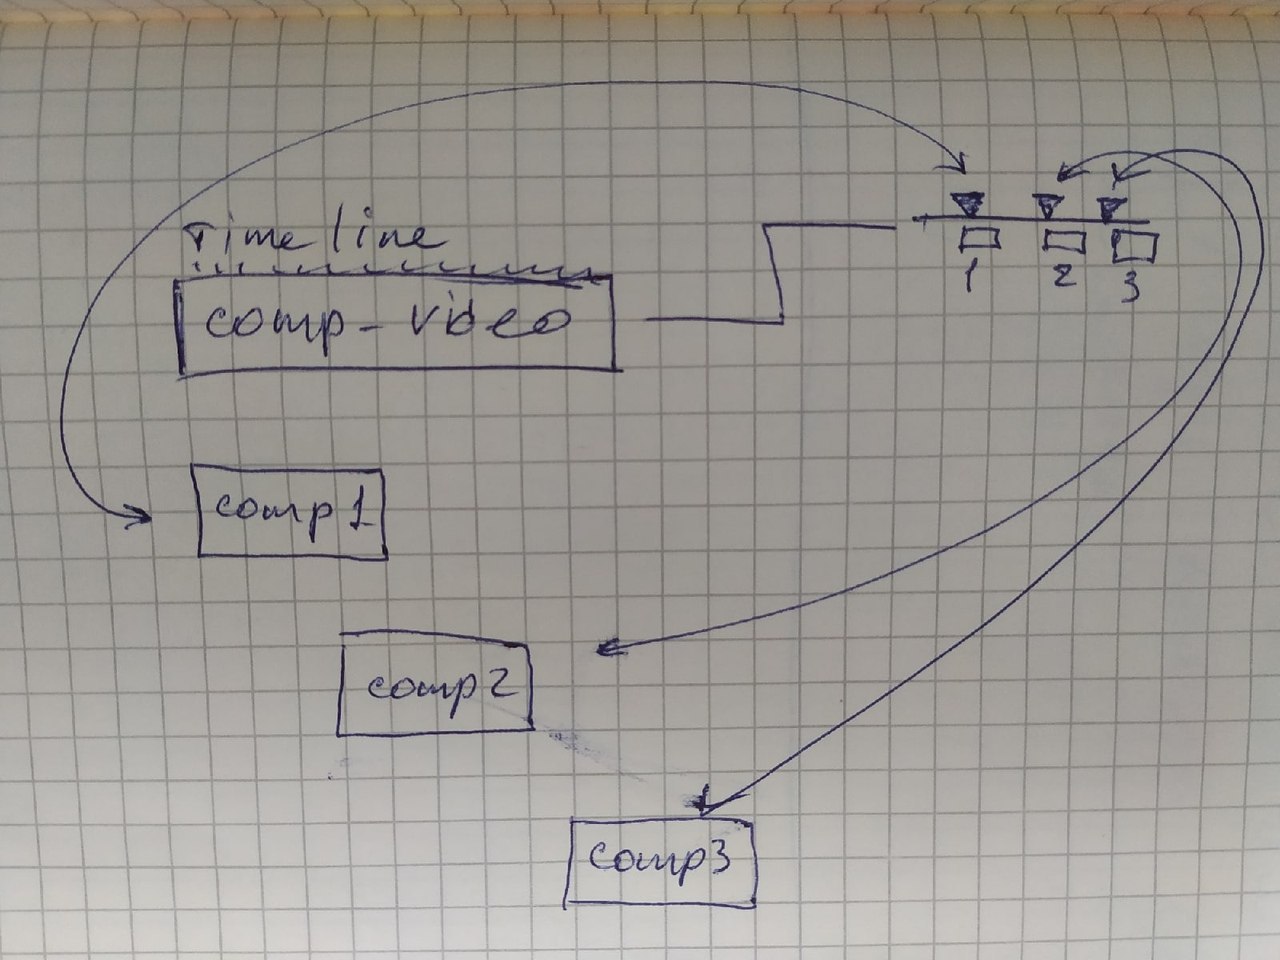 Timeline
comp-video
1 2 3
comp1
comp2
comp3